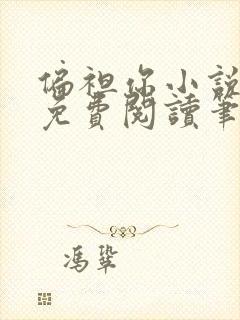 偏袒你小說
免費閱讀筆
馮鞏